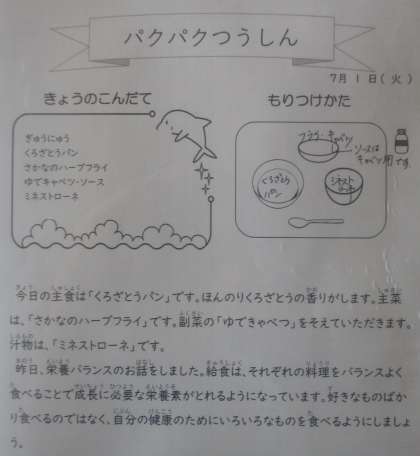 パクパクつうしん
7月 1日(火)
きょうのこんだて
ぎゅうにゅう
くろざとうパン
さかなのハーブフライ
ゆでキャベツ・ソース
ミネストローネ
もりつけかた
フライ・キャベツ
ソースは
キャベツ用です
くろざとう
パン
ミネスト
ローネ
今日の主食は「くろざとうパン」です。ほんのりくろざとうの香りがします。主菜
は、「さかなのハーブフライ」です。副菜の「ゆできゃべつ」をそえていただきます。
汁物は、「ミネストローネ」です。
昨日、栄養バランスのお話をしました。給食は、それぞれの料理をバランスよく
食べることで成長に必要な栄養素がとれるようになっています。好きなものばか
り食べるのではなく、自分の健康のためにいろいろなものを食べるようにしましょ
う。